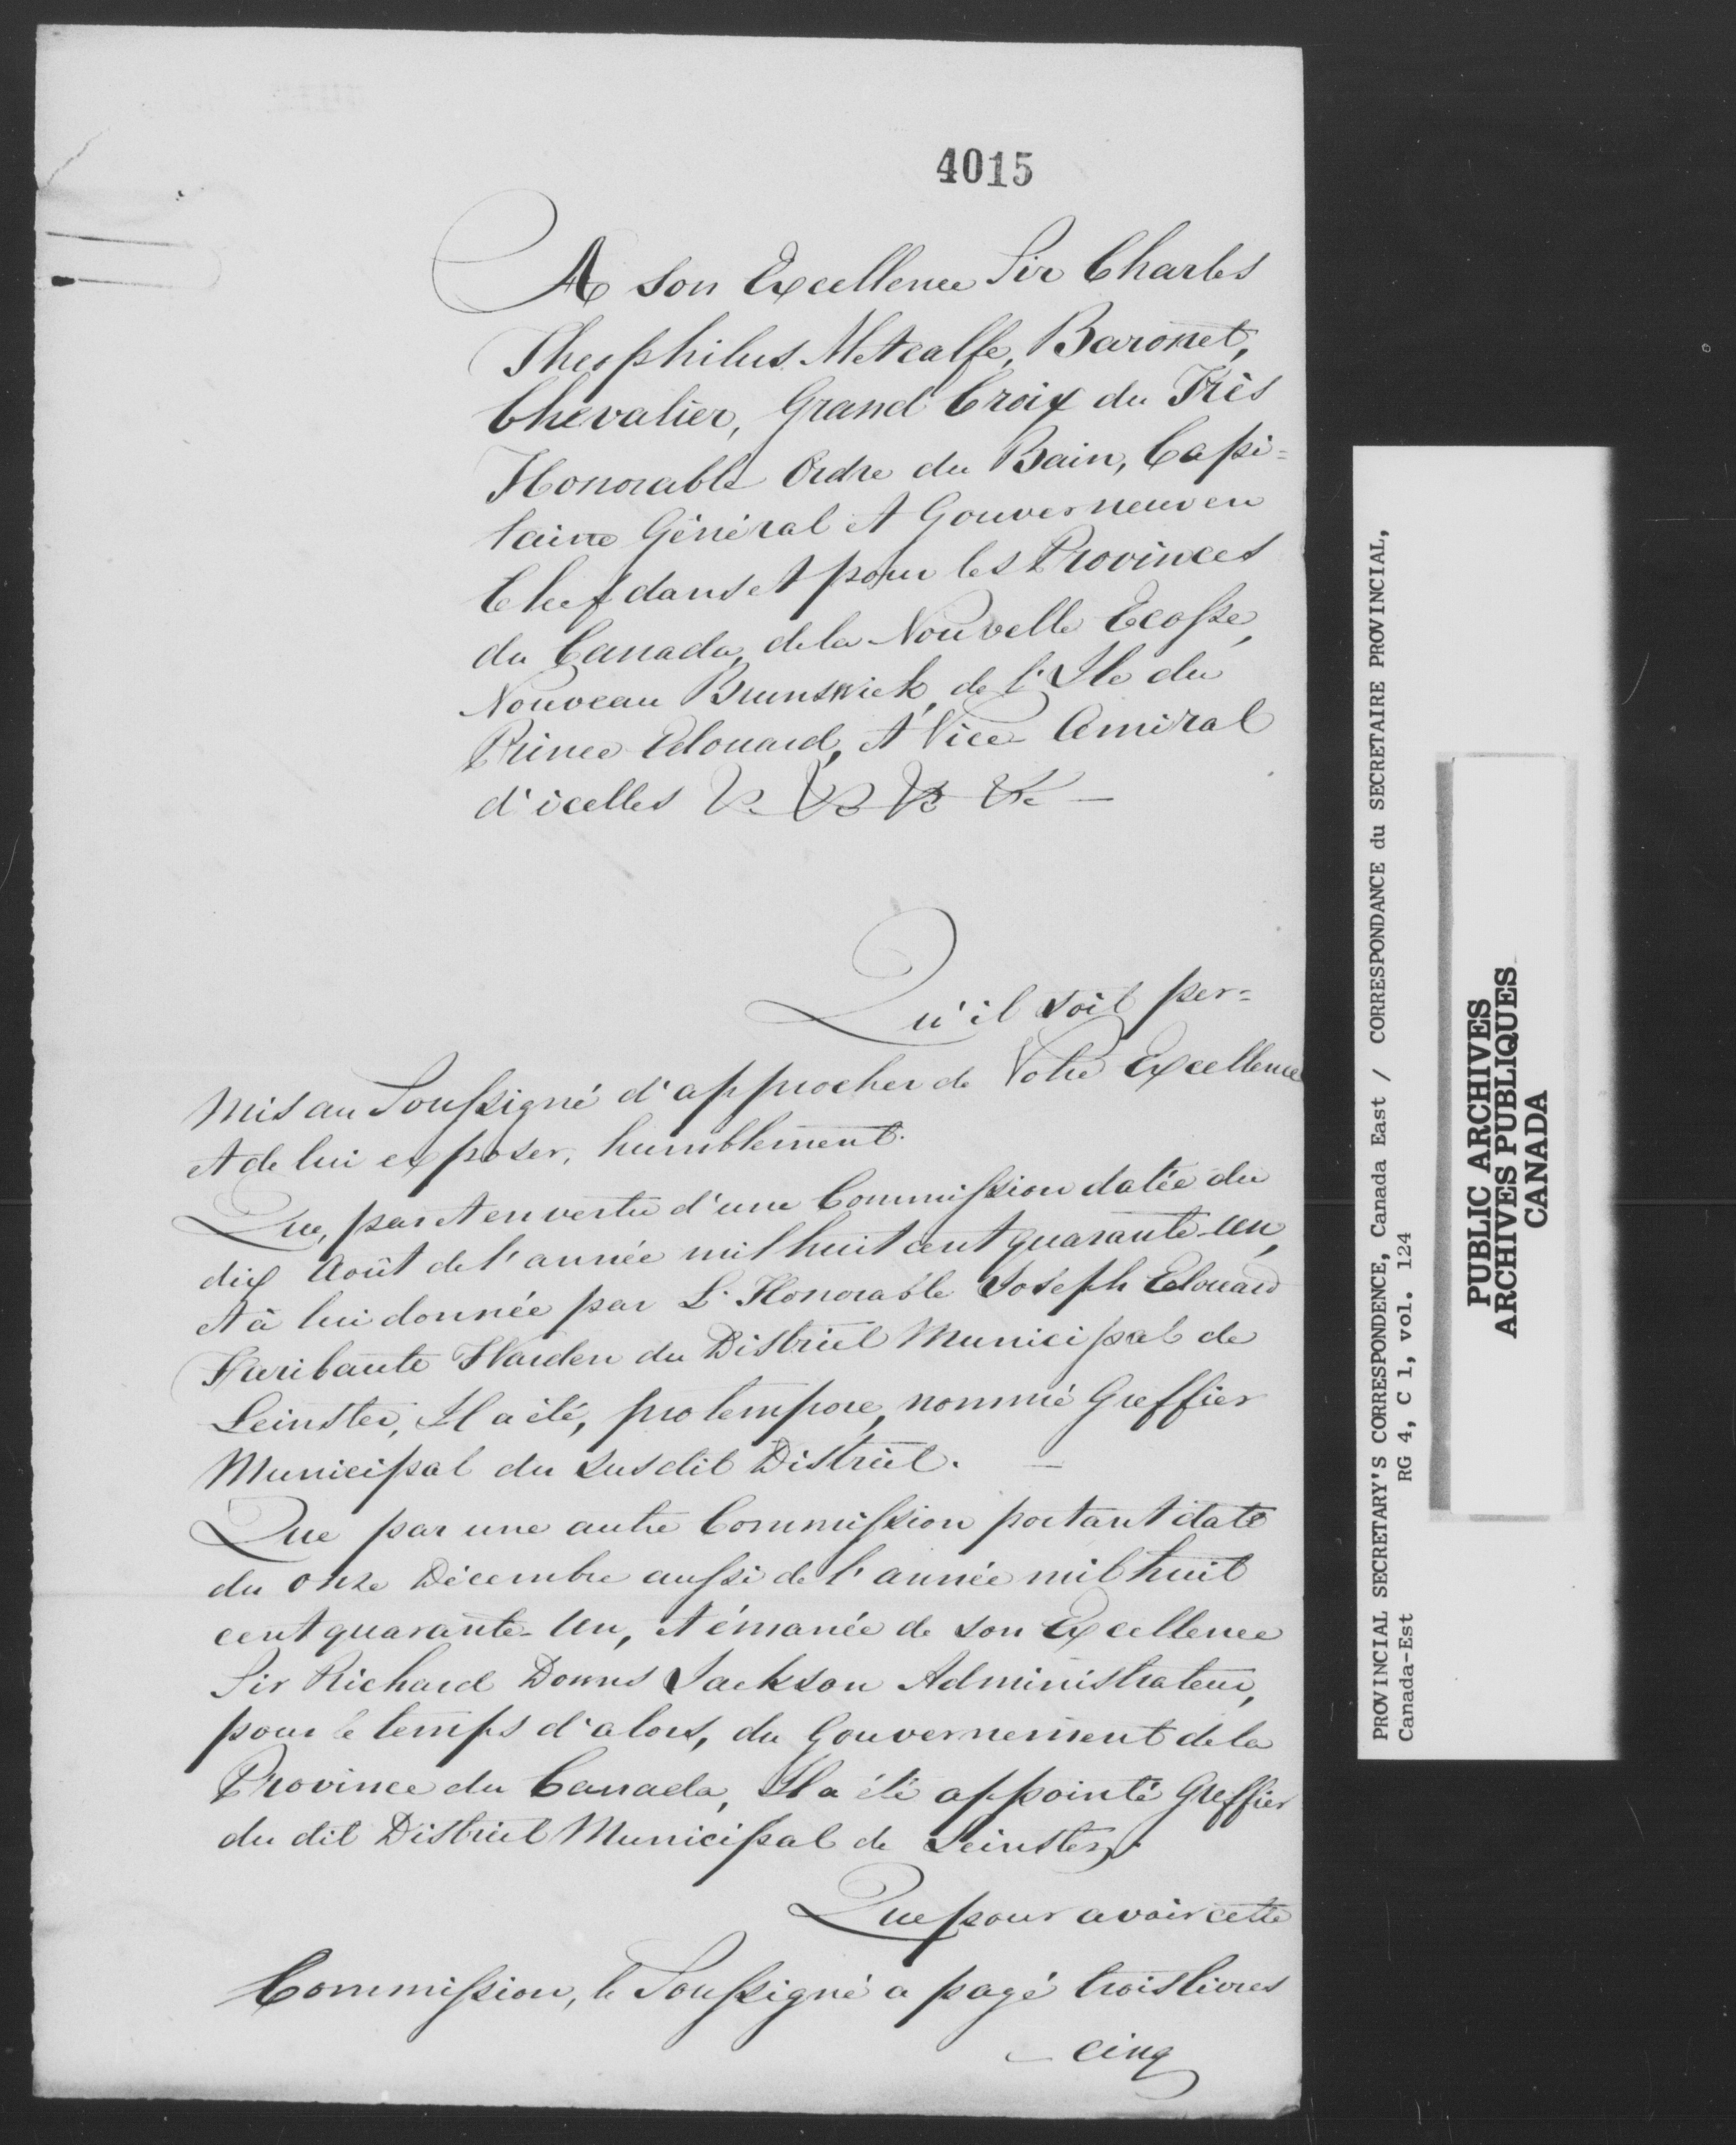 4015
A Son Excellence Sir Charles
Theophilus Metcalfe, Baronet,
Chevalier, Grand Croix du Très
Honorable Ordre du Bain, Capi=
taine Général et Gouverneur en
Chef dans et pour les Provinces
du Canada, de la Nouvelle Ecosse,
Nouveau Brunswick, de l'Ile du
Prince Edouard, et Vice-Amiral
d'icelles &c &c &c &c —
Qu'il soit per=
mis au Soussigné d'approcher de Votre Excellence
et de lui exposer, humblement.
Que, par et en vertu d'une Commission datée du
dix Août de l'année mil huit cent quarante-un,
et à lui donnée par L'Honorable Joseph Edouard
Faribault Warden du District Municipal de
Leinster, Il a été, pro tempore, nommé Greffier
Municipal du susdit District. —
Que par une autre Commission portant date
du onze Décembre aussi de l'année mil huit
cent quarante-un, et émanée de son Excellence
Sir Richard Downs Jackson Administrateur,
pour le temps d'alors, du Gouvernement de la
Province du Canada, Il a été appointé Greffier
du dit District Municipal de Leinster,.
Que pour avoir cette
Commission, le Soussigné a payé trois livres
— cinq
PROVINCIAL SECRETARY'S CORRESPONDENCE, Canada East / CORRESPONDANCE du SECRETAIRE PROVINCIAL,
Canada-Est RG 4, C 1, vol. 124
PUBLIC ARCHIVES
ARCHIVES PUBLIQUES
CANADA